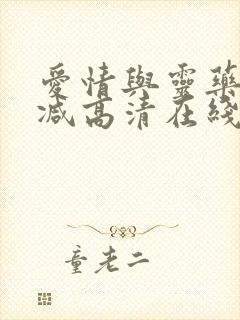 愛情與靈藥
减高清在綫
童老二